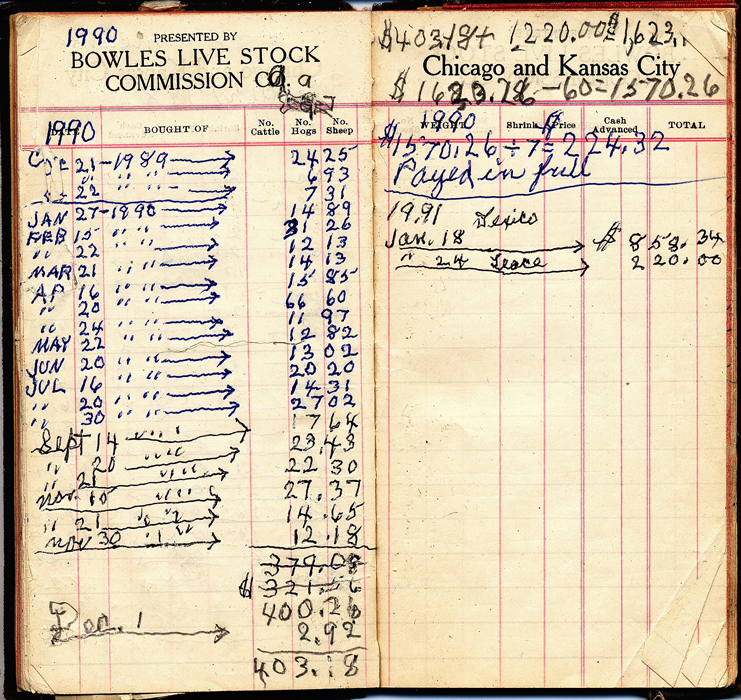 1990 PRESENTED BY
BOWLES LIVE STOCK
COMMISSION CO.
1990
BOUGHT OF No. Cattle No. Hogs No. Sheep
21-1989 24 25
" " " 6 93
22 " " 7 31
JAN 27-1890 14 89
FEB 15 " " 31 26
" 22 " " 12 13
MAR 21 " " 14 13
AP 16 " " 15 85
" 20 " " 66 60
" 24 " " 11 97
MAY 22 " " 12 82
JUN 20 " " 13 02
JUL 16 " " 20 20
" 20 " " 14 31
" 30 " " 27 02
17 64
Sept 14 " " 23.43
" 20 " " 22 30
" 21 " " 27.37
Nov. 10 " " 14.65
" 21 " " 12.18
Nov 30 " "
379.08
$ 321.56
400.26
Den. 1 2.92
403.18
$403.18+ 1220.00=1,623.
Chicago and Kansas City
-60=1570.26
1990
WEIGHT Shrink Price Cash Advanced TOTAL
$1570.26÷7=224.32
Payed in full
1991 Texico
Jan. 18 $ 858.34
" 24 220.00